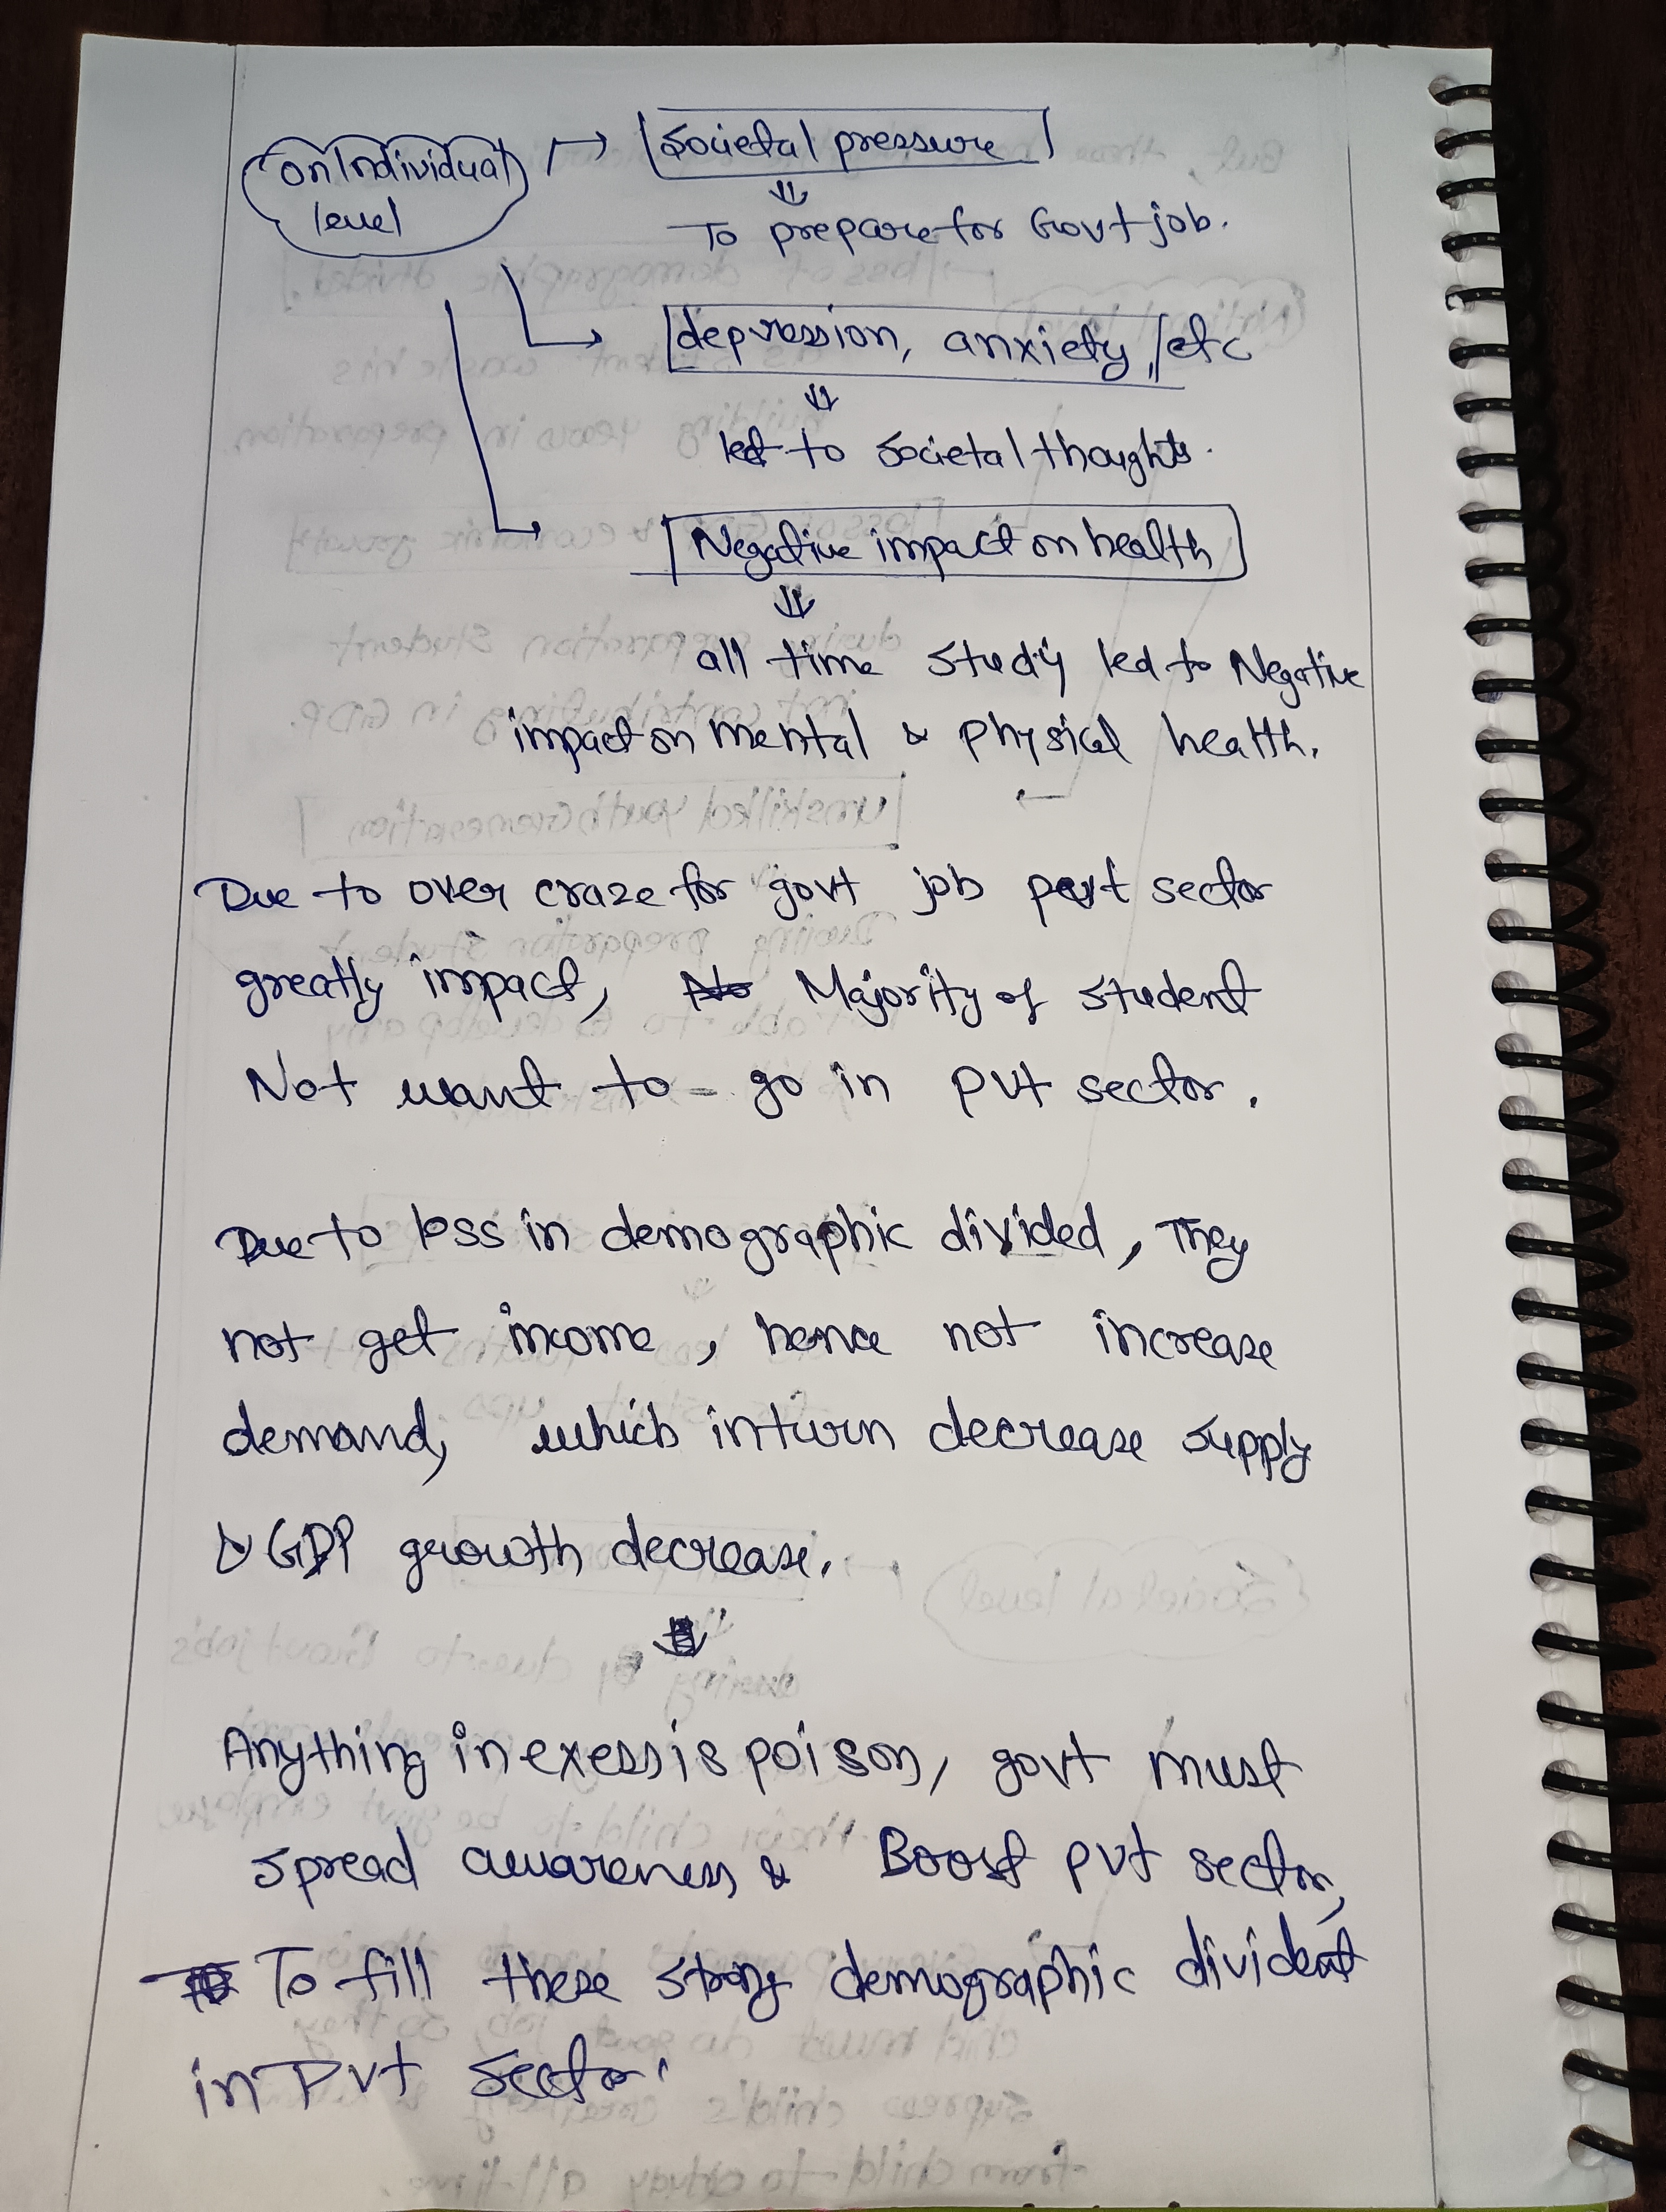 on Individual level
→ Societal pressure
⇓
To prepare for Govt job.
→ depression, anxiety, etc
⇓
led to societal thoughts.
→ Negative impact on health
⇓
all time study led to Negative
impact on mental & physical health.
Due to over craze for govt job pvt sector
greatly impact, Majority of student
Not want to - go in pvt sector.
Due to loss in demographic divided, They
not get income, hence not increase
demand, which inturn decrease supply
& GDP growth decrease.
⇓
Anything in exess is poison, govt must
spread awareness & Boost pvt sector,
To fill these strong demographic divident
in Pvt sector.